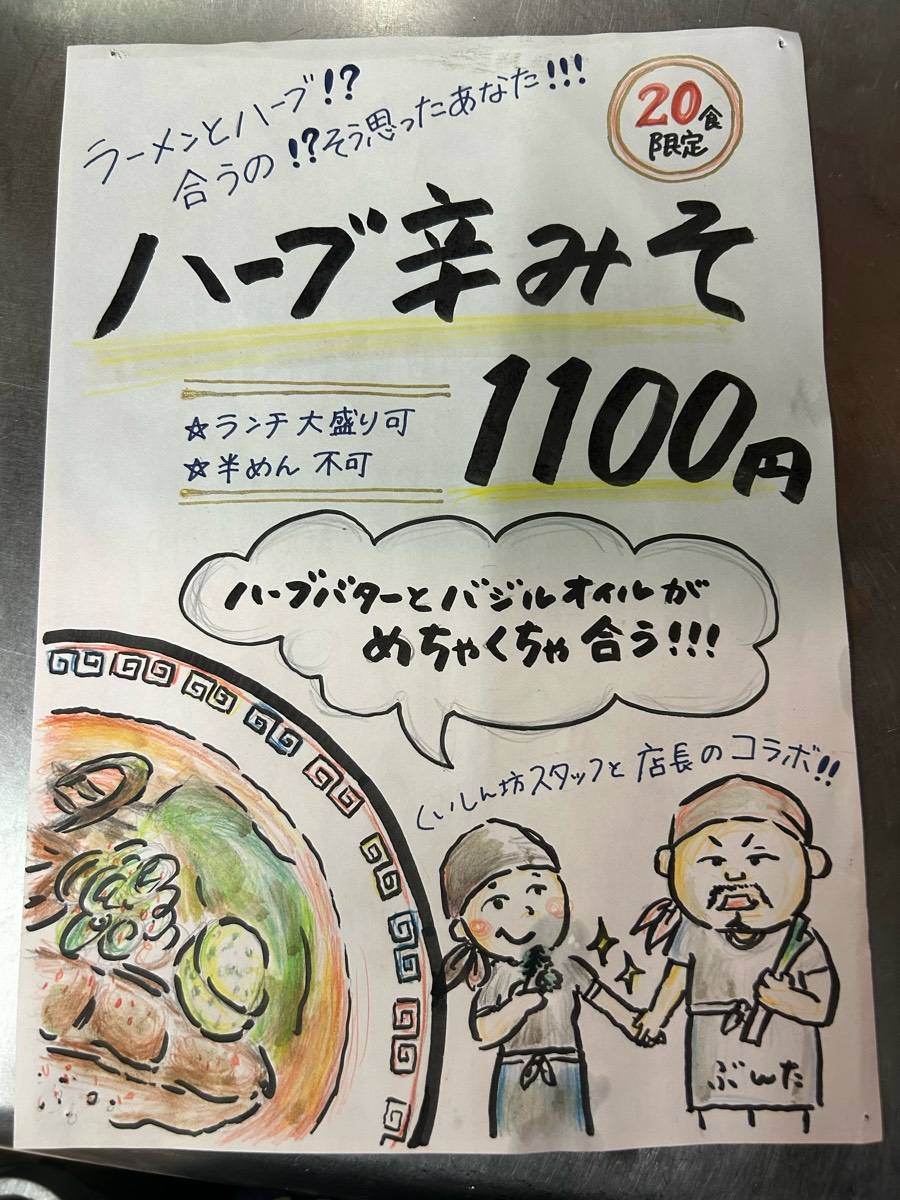 ラーメンとハーブ!?
合うの!?そう思ったあなた!!!
20食
限定
ハーブ辛みそ
1100円
☆ランチ大盛り可
☆半めん 不可
ハーブバターとバジルオイルが
めちゃくちゃ合う!!!
くいしん坊スタッフと店長のコラボ!!
ぶんた